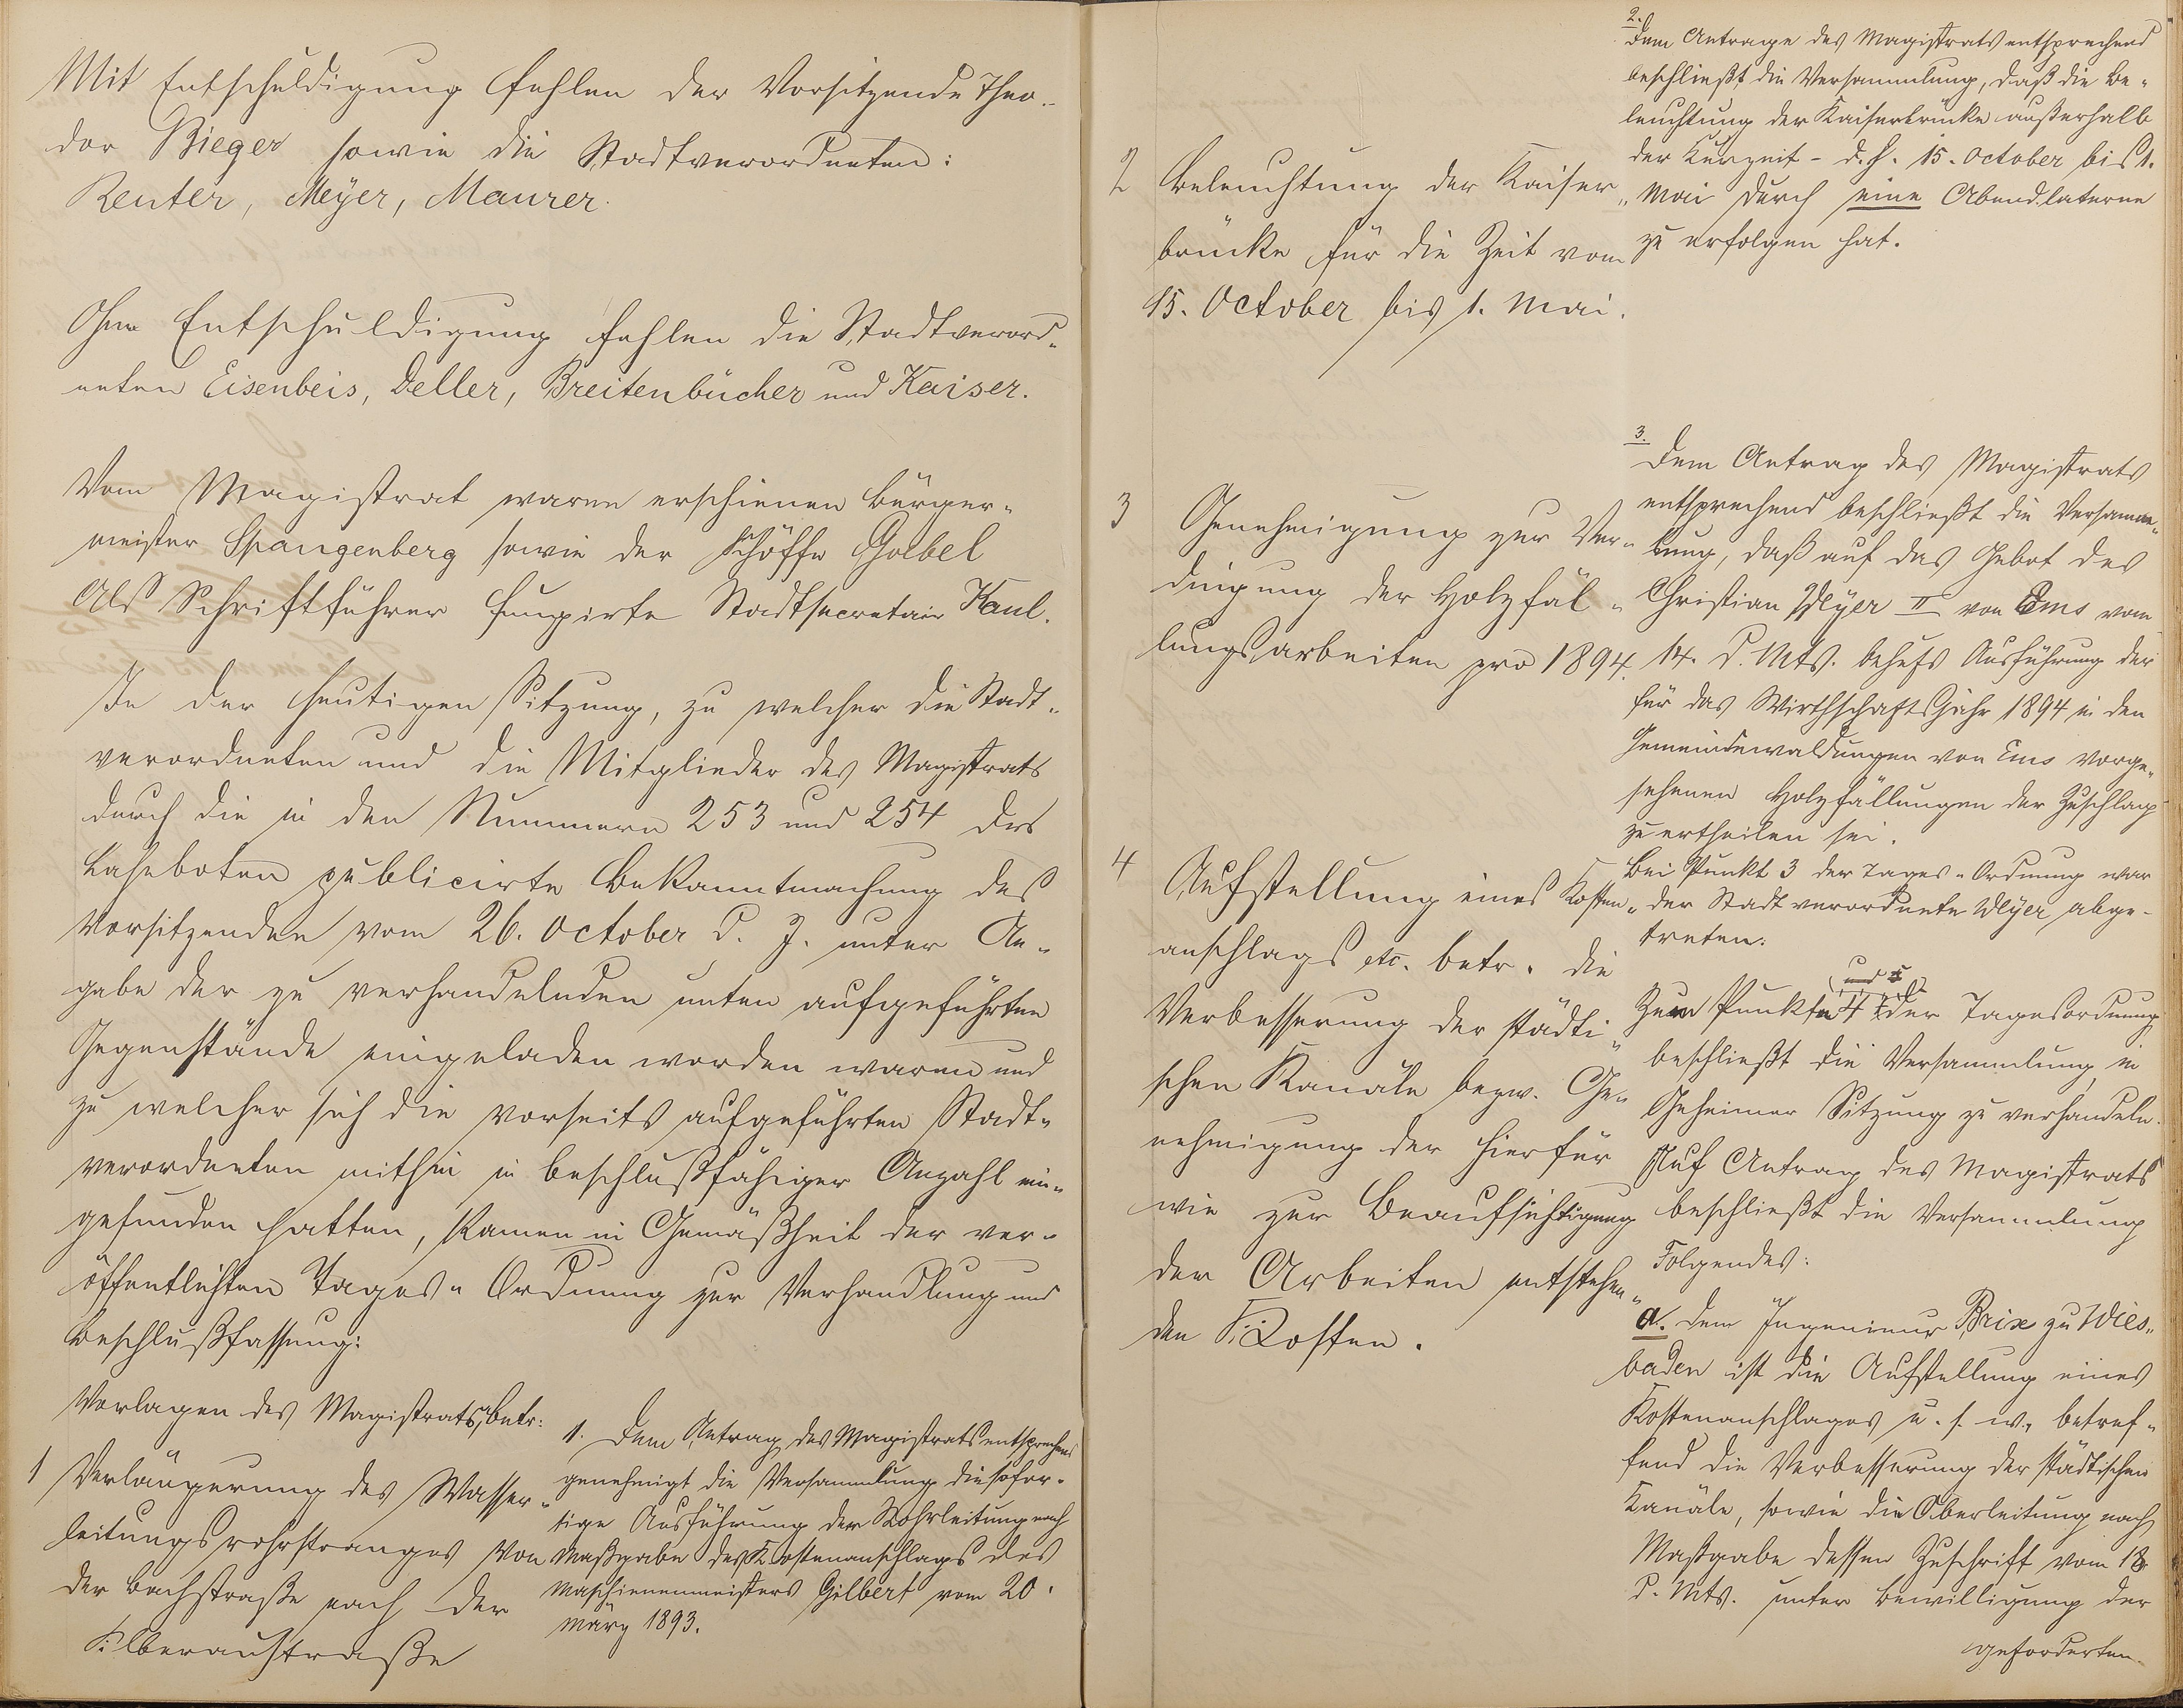 Mit Entschuldigung fehlen der Vorsitzende Theo-
dor Bieger sowie die Stadtverordneten:
Reuter, Meÿer, Maurer.
Ohne Entschuldigung fehlen die Stadtverord-
neten Eisenbeis, Deller, Breitenbücher und Kaiser.
Vom Magistrat waren erschienen Bürger-
meister Spangenberg sowie der Schöffe Goebel
Als Schriftführer fungirte Stadtsecretair Kaul.
In der heutigen Sitzung, zu welcher die Stadt-
verordneten und die Mitglieder des Magistrats
durch die in den Nummern 253 und 254 des
Lahnboten publicirte Bekanntmachung des
Vorsitzenden vom 26. October d. J. unter An-
gabe der zu verhandelnden unten aufgeführten
Gegenstände eingeladen worden waren und
zu welcher sich die vorseits aufgeführten Stadt-
verordneten mithin in beschlußfähiger Anzahl ein-
gefunden hatten, kamen in Gemäßheit der ver-
öffentlichten Tages-Ordnung zur Verhandlung und
Beschlußfassung:
Vorlagen des Magistrats, betr:
1 Verlängerung des Wasser-
leitungsrohrstranges von
der Bachstraße nach der
Silberaustraße
1. Dem Antrag des Magistrats entsprechend
genehmigt die Versammlung die sofor-
tige Ausführung der Rohrleitung nach
Maßgabe des Kostenanschlags des
Maschienenmeisters Gilbert vom 20.
März 1893.
2 Beleuchtung der Kaiser-
brücke für die Zeit vom
15. October bis 1. Mai.
2.
Dem Antrage des Magistrats entsprechend
beschließt die Versammlung, daß die Be-
leuchtung der Kaiserbrücke außerhalb
der Kurzeit - d. h. 15. October bis 1.
Mai durch eine Abendlaterne
zu erfolgen hat.
3 Genehmigung zur Ver-
dingung der Holzfäl-
lungsarbeiten pro 1894.
3.
Dem Antrag des Magistrats
entsprechend beschließt die Versamm-
lung, daß auf das Gebot des
Christian Weÿer II von Ems vom
14. d. Mts. behufs Ausführung der
für das Wirthschaftsjahr 1894 in den
Gemeindewaldungen von Ems vorge-
sehenen Holzfällungen der Zuschlag
zu ertheilen sei.
Bei Punkt 3 der Tages-Ordnung war
der Stadtverordnete Weÿer abge-
treten.
4 Aufstellung eines Kosten-
anschlags etc. betr. die
Verbesserung der städti-
schen Kanäle bezw. Ge-
nehmigung der hierfür
wie zur Beaufsichtigung
der Arbeiten entstehen-
den Kosten.
Zum Punkte 4 der Tagesordnung
beschließt die Versammlung in
Geheimer Sitzung zu verhandeln.
Auf Antrag des Magistrats
beschließt die Versammlung
Folgendes:
a. Dem Ingenieur Brix zu Wies-
baden ist die Aufstellung eines
Kostenanschlages u. s. w., betref-
fend die Verbesserung der städtischen
Kanäle, sowie die Oberleitung nach
Maßgabe dessen Zuschrift vom 18
d. Mts. unter Bewilligung der
geforderten